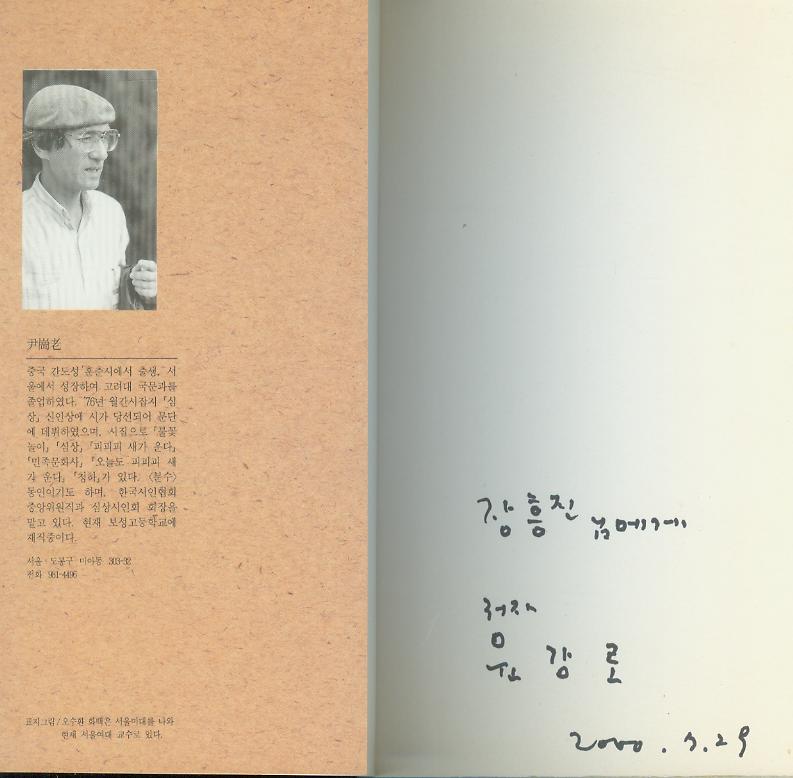 尹崗老
중국 간도성 훈춘시에서 출생. 서
울에서 성장하여 고려대 국문과를
졸업하였다. '76년 월간시잡지 「심
상」 신인상에 시가 당선되어 문단
에 데뷔하였으며, 시집으로 「불꽃
놀이」 「심상」, 「피피피 새가 운다」
「민족문화사」 「오늘도 피피피 새
가 운다」 「청하」가 있다. 〈분수〉
동인이기도 하며, 한국시인협회
중앙위원직과 심상시인회 회장을
맡고 있다. 현재 보성고등학교에
재직중이다.
서울·도봉구 미아동 303-32
전화 981-4496
표지그림/오수환 화백은 서울미대를 나와
현재 서울여대 교수로 있다.
장흥진 님에게
저자
윤강로
2000. 5. 29